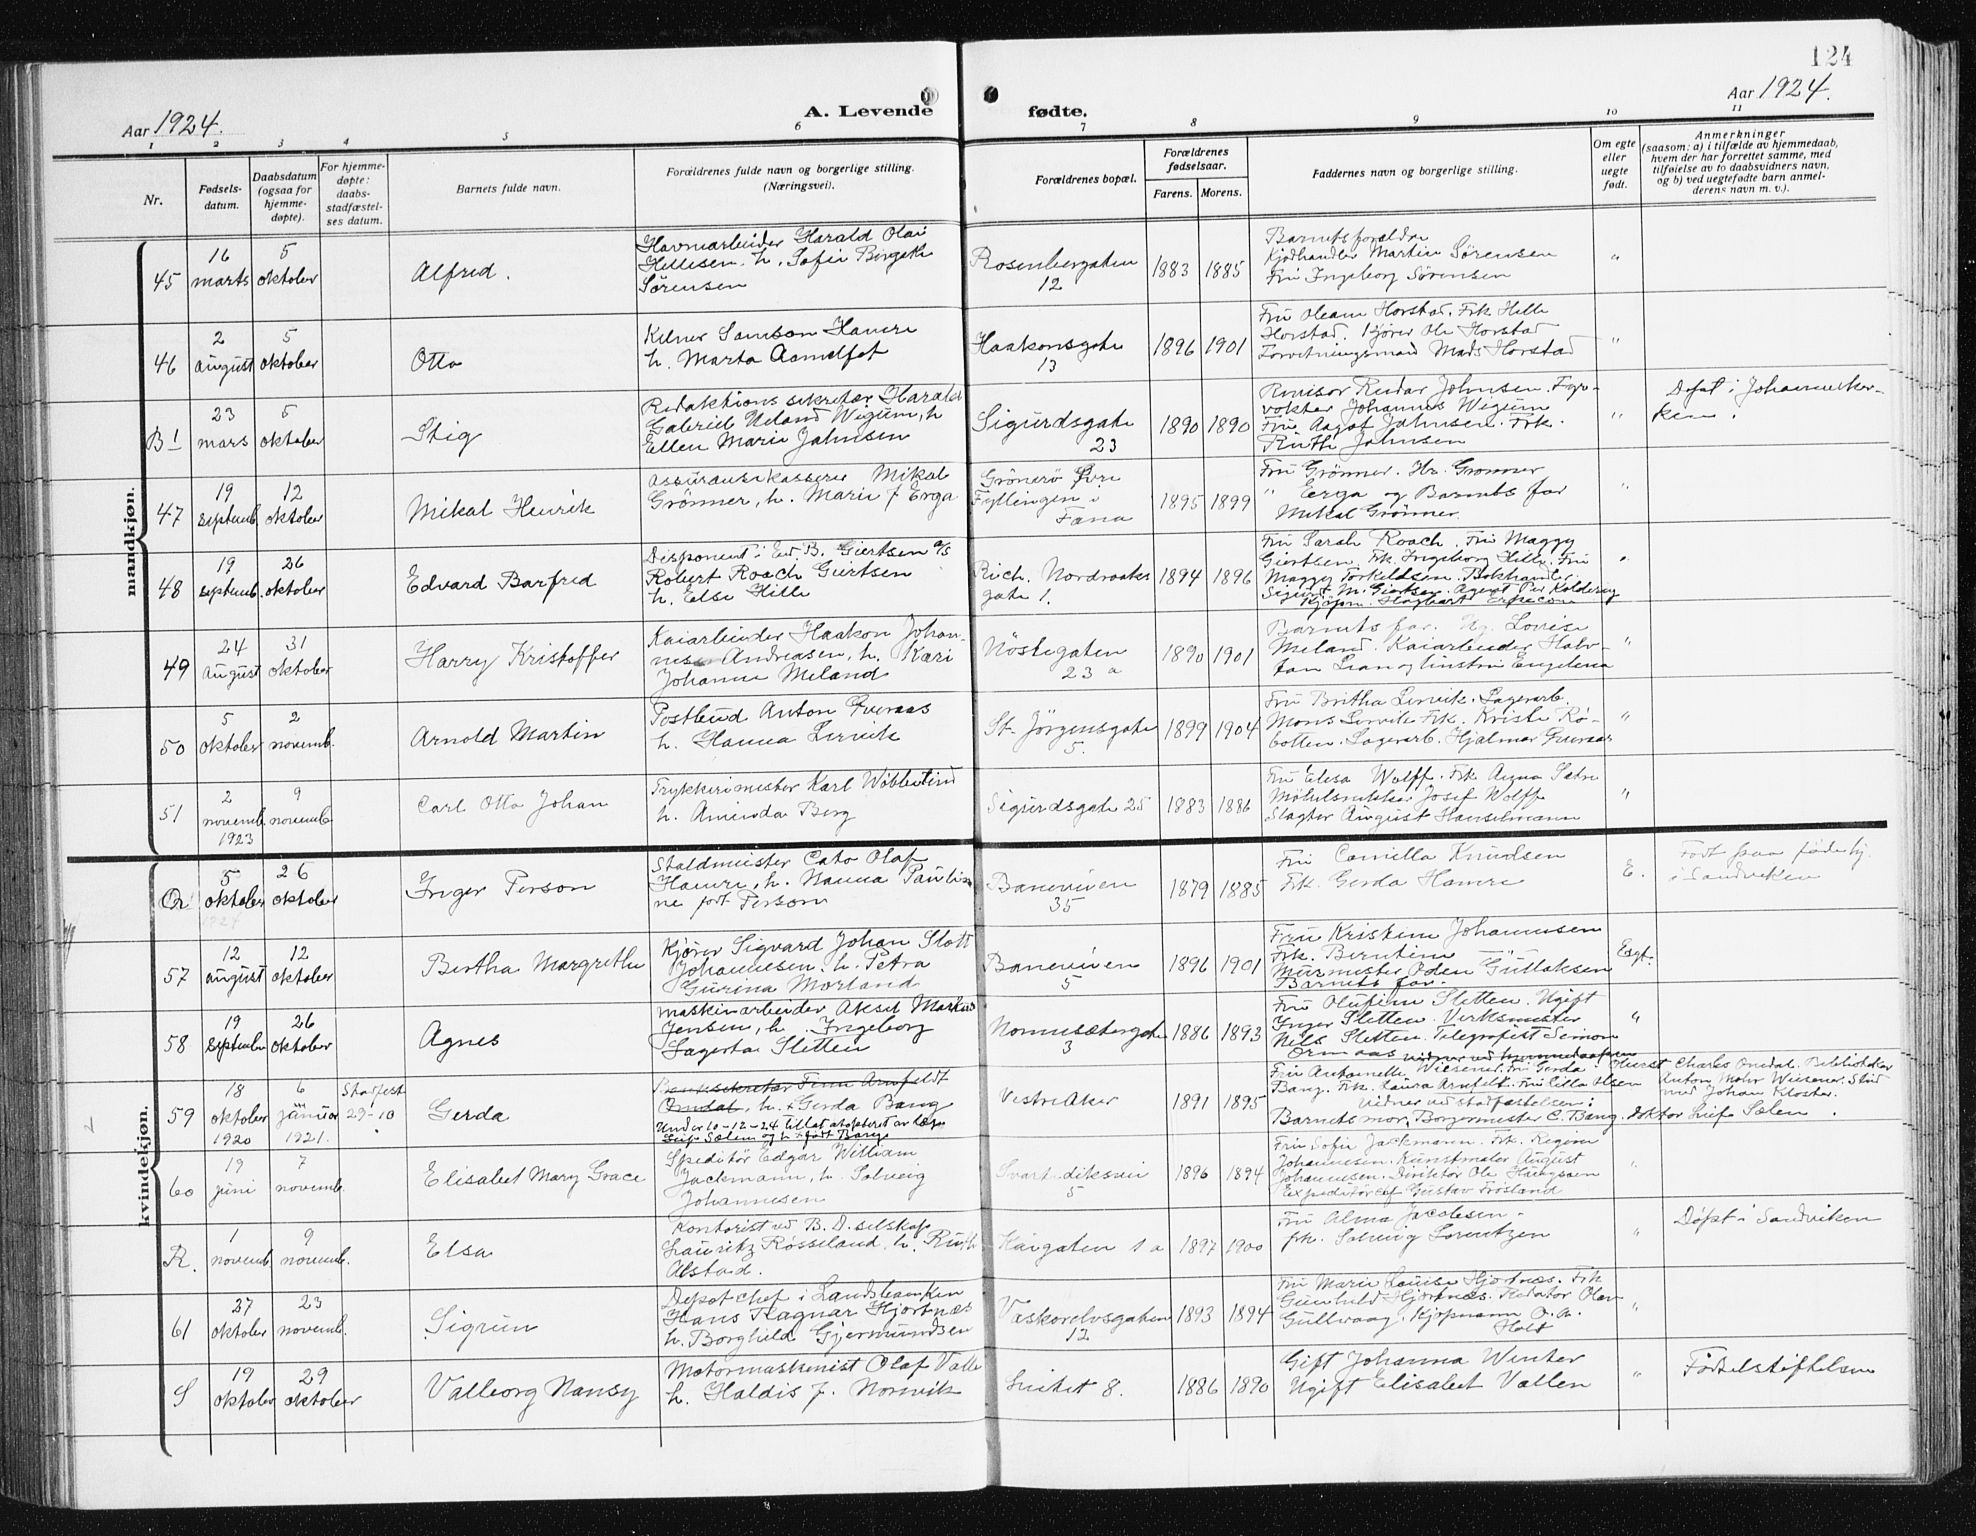 124
Aar 1924.
A. Levende fødte.
Aar 1924.
1 2 3 4 5 6 7 8 9 10 11
Nr.
Fødsels-
datum.
Daabsdatum
(ogsaa for
hjemme-
døpte).
For hjemme-
døpte:
daabs-
stadfæstel-
ses datum.
Barnets fulde navn.
Forældrenes fulde navn og borgerlige stilling.
(Næringsvei).
Forældrenes bopæl.
Forældrenes
fødselsaar.
Farens. Morens.
Faddernes navn og borgerlige stilling.
Om egte
eller
uegte
født.
Anmerkninger
(saasom: a) i tilfælde av hjemmedaab,
hvem der har forrettet samme, med
tilføielse av to daabsvidners navn,
og b) ved uegtefødte barn anmel-
derens navn m. v.).
mandkjøn.
45
16
marts
5
oktober
Alfred.
Havnearbeider Harald Olai
Hellesen. h. Sofie Birgitte
Sørensen
Rosenbergaten
12
1883 1885
Barnets forældre
Kjødhandler Martin Sørensen
Fru Ingeborg Sørensen
"
46
2
august
5
oktober
Otto
Kelner Samson Hamre
h. Marta
Haakonsgate
13
1896 1901
Fru Oleane Horstad. Frk Helle
Horstad. Kjører Ole Horstad
Forretningsmand Mads Horstad
"
B1
23
mars
5
oktober
Stig
Redaktionssekretær Harald
Gabriel Ueland Wigum, h
Ellen Marie Johnsen
Sigurdsgate
23
1890 1890
Revisor Reidar Johnsen. Fyr-
vokter Johannes Wigum
Fru Aagot Johnsen. Frk.
Ruth Johnsen
"
Døpt i Johanneskir-
ken.
47
19
septemb.
12
oktober
Mikal Henrik
Assuransekasserer Mikal
Grönner, h. Marie f Erga
Grönerö Övre
Fyllingen i
Fana
1895 1899
Fru Grönner. Hr. Grønner
" Erga og Barnets far
Mikal Grönner.
"
48
19
septemb.
26
oktober
Edvard Barfred
Disponent i Ed. B. Giertsen a/s
Robert Roach Giertsen
h. Else Hille
Rich. Nordraaks
gate 1.
1894 1896
Fru Sarah Roach. Fru Maggy
Giertsen. Frk. Ingeborg Hille. Fru
Maggy Torkildsen. Bokhandler
Sigurd M. Giertsen. Agent Per Koldervg
Kjøpm. Hagbart
"
49
24
August
31
oktober
Harry Kristoffer
Kaiarbeider Haakon Johan-
nes Andreasen, h. Kari
Johanne Meland
Nöstegaten
23 a
1890 1901
Barnets far. Ug. Lovise
Meland. Kaiarbeider Halv-
dan Lian og hustru Engelena
"
50
5
oktober
2
novemb.
Arnold Martin
Postbud Anton Gveraas
h. Hanna Lervik
St. Jörgensgate
5.
1899 1904
Fru Britha Lervik. Lagerarb.
Mons Lervik Frk. Kristi Rø-
botten. Lagerarb. Hjalmar Gveraas
"
51
2
novemb.
1923
9
novemb.
Carl Otto Johan
Trykkerimester Karl
h. Aminda Berg
Sigurdsgate 25
1883 1886
Fru Elesa Wolff. Frk Agna Sætre
Møbelsnekker Josef Wolff
Slagter August Hanselmann
"
kvindekjøn.
Q.
5
oktober
1924
26
oktober
Inger Person
Staldmester Cato Olaf
Hamre, h. Nanna Pauli-
ne født Person
Baneveien
35
1879 1885
Fru Camilla Knudsen
Frk. Gerda Hamre
E.
Født paa fødehj.
i Sandviken
57
12
august
12
oktober
Bertha Margrethe
Kjører Sigvard Johan Slott
Johannesen. h. Petra
Gurina Morland
Baneveien
5
1896 1901
Fru Kristine Johannesen
Frk. Berntine
Murmester Oden Gullaksen
Barnets far.
Egt.
58
19
September
26
oktober
Agnes
Maskinarbeider Aksel Markus
Jensen, h. Ingeborg
Lagerta Sletten
Nonnesætergate
3
1886 1893
Fru Olufine Sletten. Ugift
Inger Sletten. Verksmester
Nils Sletten. Telegrafist Simon
Ormaas
"
59
18
oktober
1920
6
januar
1921.
Stadfest
29-10
Gerda
Banksekretær Finn Arnfeldt
Omdal, h. Gerda Bang
Under 10-12-24 tillat adopteret av læge
Leif Salem og h. født Bang
Vestre Aker
1891 1895
vidner ved hjemmedaapen
Fru Antoinette Wiesener. Fru Gerda
Bang. Frk. Laura Arnfelt. Fru Cilla Olsen
vidner ved stadfæstelsen:
Barnets mor. Borgermester C. Bang. doktor Leif Salem.
Charles Omdal. Bibliotekar
Anton Mohr Wiesener. Stud
med Johan Kloster.
60
19
juni
7
novemb.
Elisabet Mary Grace
Speditør Edgar William
Jackmann, h. Solveig
Johannesen
Svartediksvei
5
1896 1894
Fru Sofie Jackmann. Frk. Regine
Johannesen. Kunstmaler August
Johannesen. Direktør Ole
Expeditørchef Gustav Frøsland
"
R.
1
novemb
9
novemb.
Elsa
Kontorist ved B. D. selskap
Lauritz Røsseland. h. Ruth
Alstad.
Kaigaten 1 a
1897 1900
Fru Alma Jacobsen.
frk. Solveig Lorentzen
"
Døpt i Sandviken
61
27
oktober
23
novemb.
Sigrun
Depotchef i Landsbanken
Hans Ragnar Hjortnæs
h. Borghild Gjermundsen
Vaskerelvsgaten
12
1893 1894
Fru Marie Louise Hjortnæs. Frk
Gunhild Hjortnæs. Redaktør Olav
Gullvaag. Kjøpmann O. A.
Holt
"
S
19
oktober
29
oktober
Valborg Nansy
Motormaskinist Olaf Valle
h. Haldis f. Norevik
Lrikket 8.
1886 1890
Gift Johanna Winter
Ugift Elisabet Vallen
"
Fødselstiftelsen